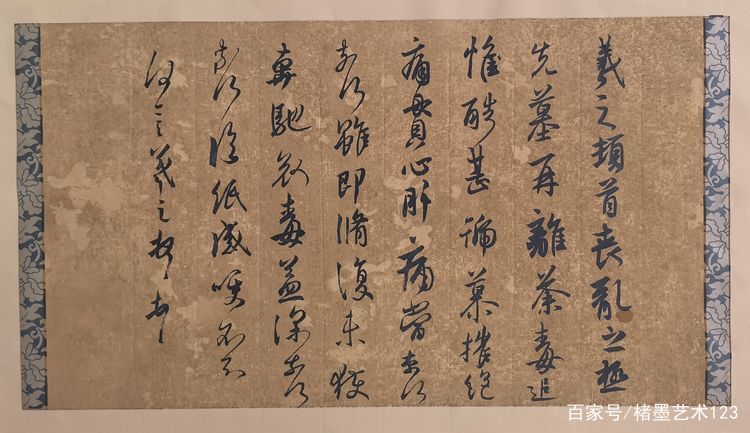 羲之頓首喪亂之極
先墓再離荼毒追
惟酷甚號慕摧絕
痛貫心肝痛當奈何
奈何雖即脩復未獲
奔馳哀毒益深奈何
奈何臨紙感哽不知
何言羲之頓首頓首
百家号/楮墨艺术123